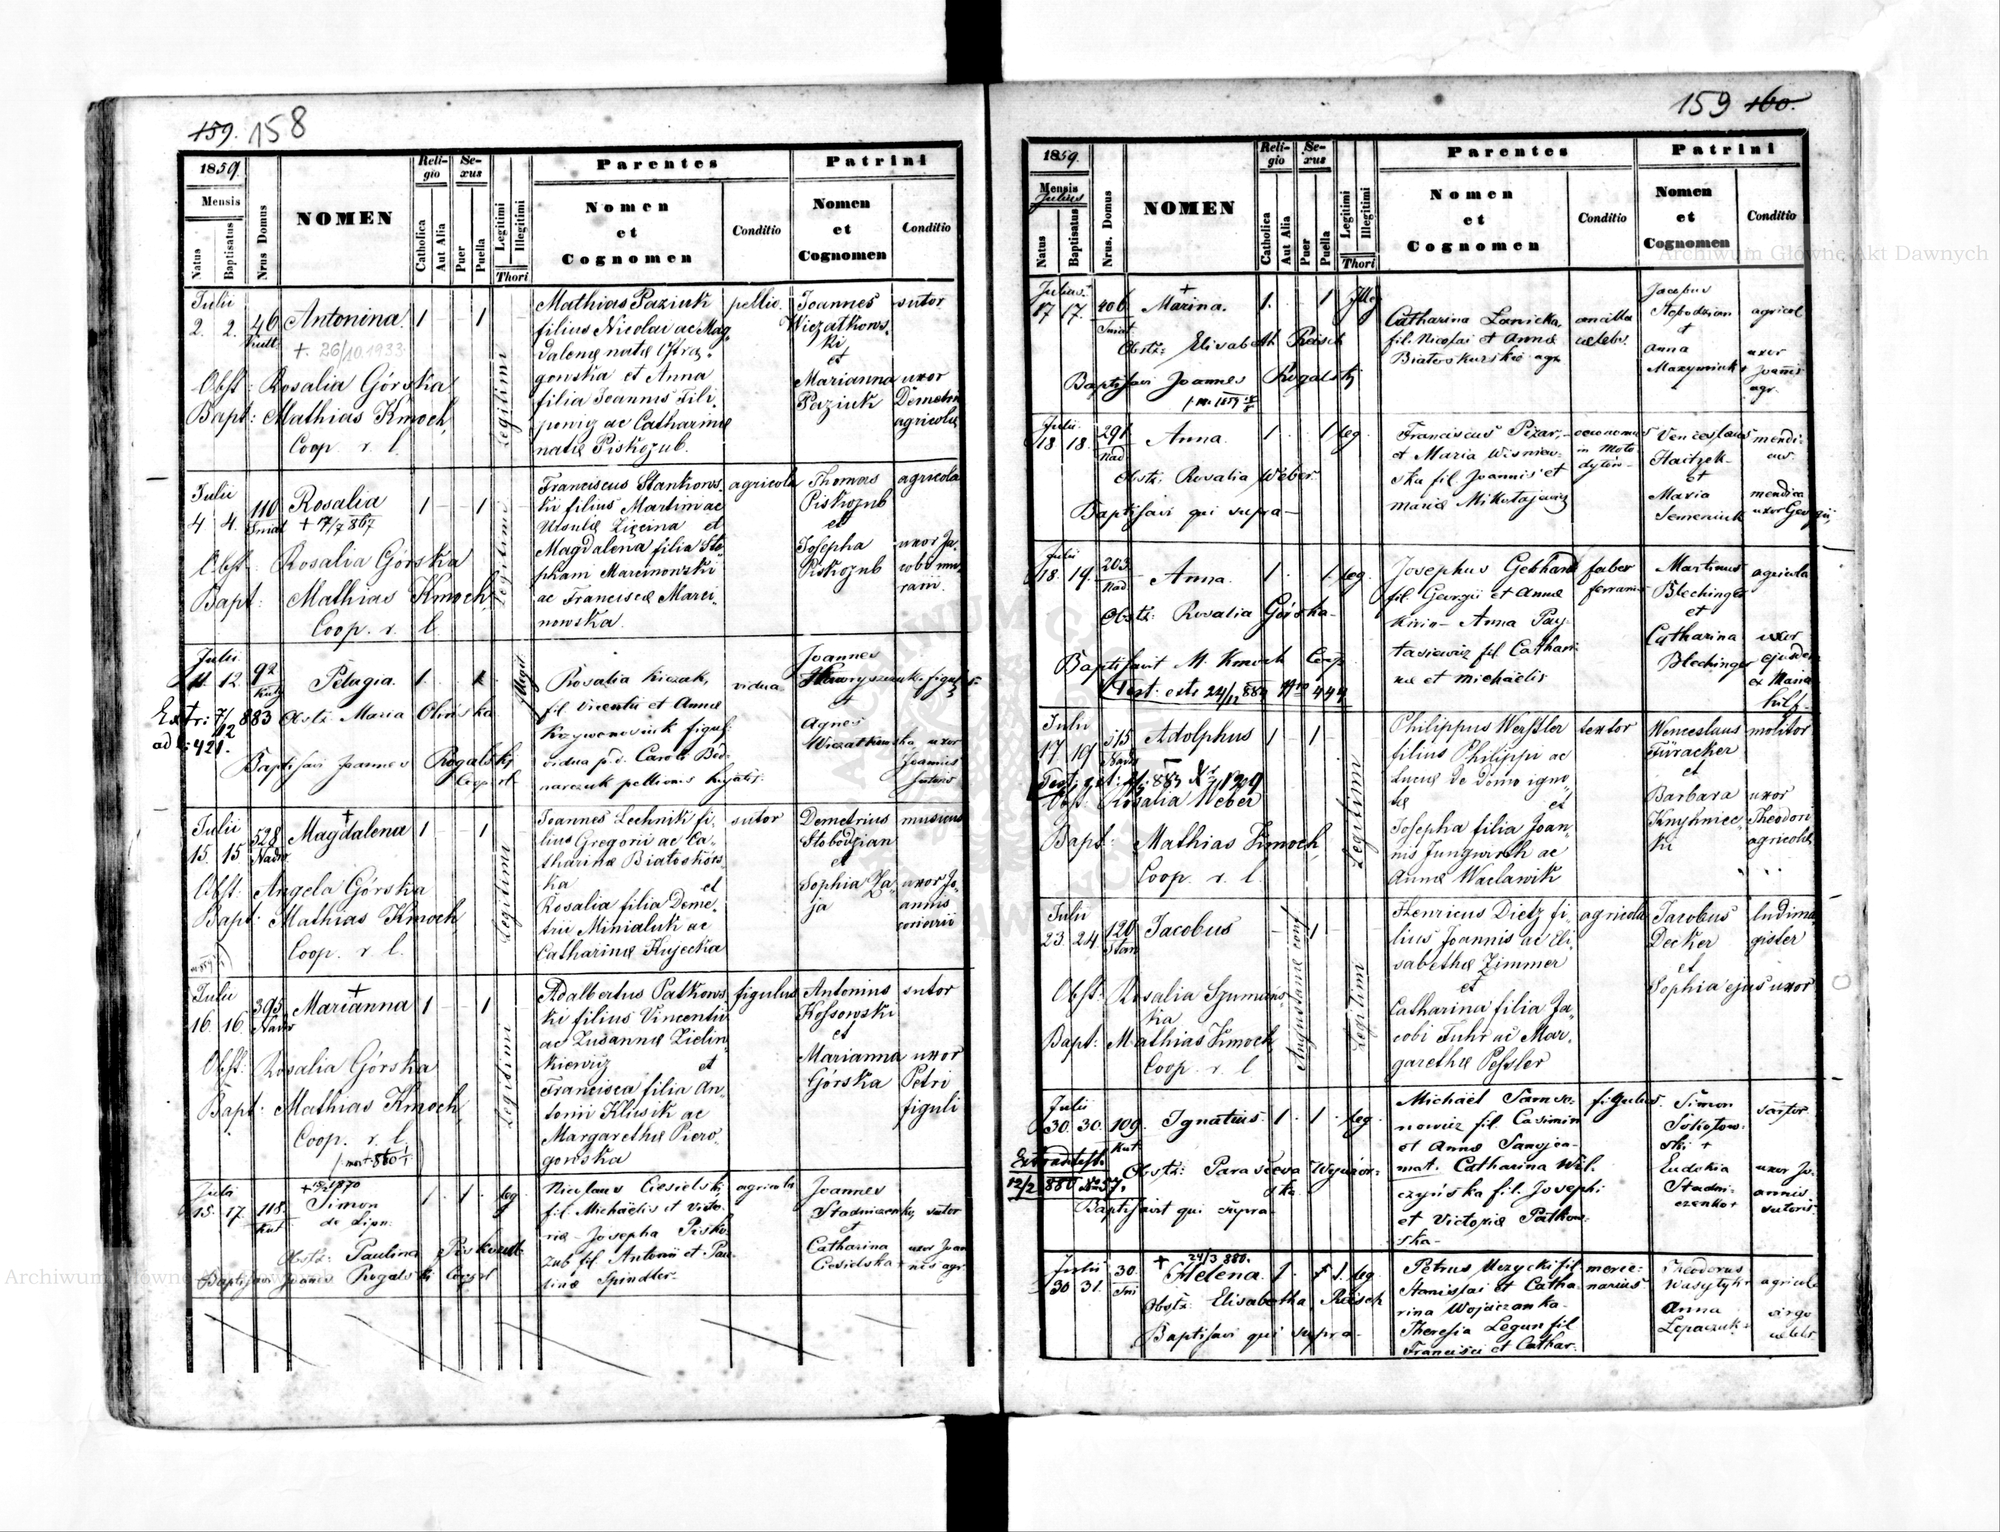 159. 158
1859.
Mensis
Natus
Baptisatus
Nrus Domus
NOMEN
Religio
Catholica
Aut Alia
Sexus
Puer
Puella
Legitimi
Illegitimi
Thori
Parentes
Nomen
et
Cognomen
Conditio
Patrini
Nomen
et
Cognomen
Conditio
Julii
2. 2. 46 Antonina 1 - 1
+ 26/10.1933
Obst: Rosalia Górska
Bapt: Mathias Kmoch,
Coop. r. l.
Legitimi
Mathias Paziuk
filius Nicolai ac Mag
dalenæ natæ
gowska et Anna
filia Joannis Fili
powiz ac Catharinæ
natæ Piskozub.
pellio.
Joannes
Wiczatkows
ki
et
Marianna
Paziuk
sutor
uxor
Demetrii
agricolæ
Julii
4 4. 110 Rosalia 1 - 1
Sniat + 7/7 867
Obst: Rosalia Górska
Bapt: Mathias Kmoch,
Coop. r. l
Legitimi
Franciscus Stankows
ki filius Martini ac
Ursulæ Zięcina et
Magdalena filia Ste
phani Marcinowski
ac Franciscæ Marci
nowska.
agricola
Thomas
Piskozub
et
Josepha
Piskozub
agricola
uxor Ja
cobi mu
rarii.
Julii
11. 12. 92 Pelagia. 1. 1
Kutt
Extr: 7/12 883
ad N: 421.
Obst: Maria Olinska
Baptisavi Joannes Rogalski
Coop rl
Illegit
Rosalia Kiczak,
fil Vicentii et Annæ
Krzywonosiuk figul:
vidua p.d. Caroli Bed
narczuk pellionis hujatis:
vidua
Joannes
Hawryszczuk
et
Agnes
Wiczatkowska
figul
uxor
Joannis
sutoris
Julii
15. 15 528 Magdalena 1 - 1
+
Nadw
Obst: Angela Górska
Bapt: Mathias Kmoch
Coop. r. l.
Legitimi
Joannes Lechnik fi
lius Gregorii ac Ca
tharinæ Białoskórs
ka et
Rosalia filia Deme
trii Minialuk ac
Catharinæ Kujecka
sutor
Demetrius
Słobodzian
et
Sophia Za
ja
musicus
uxor Jo
annis
coriarii
Julii
16. 16. 395 Marianna 1 - 1
+
Nadw
Obst: Rosalia Górska
Bapt: Mathias Kmoch,
Coop. r. l.
Legitimi
Adalbertus Patkows
ki filius Vincentii
ac Zusannæ Zielin
kiewicz et
Francisca filia An
tonii Klusik ac
Margarethæ Piero
gowska
figulus
Antonius
Kossowski
et
Marianna
Górska
sutor
uxor
Petri
figuli
Julii
15. 17. 118. Simon 1. 1. leg
Kut de Lipn:
Obstz: Paulina Piskozub
Baptisavi Joannes Rogalski Coop rl
Nicolaus Ciesielski,
fil. Michaëlis et Victo
riæ - Josepha Pisko
zub fil. Antonii et Pau
linæ Spindler.
agricola
Joannes
Stadniczenko,
et
Catharina
Ciesielska
sutor
uxor Joan
nes agr.
159 160.
1859.
Mensis
Julius
Natus
Baptisatus
Nrus. Domus
NOMEN
Religio
Catholica
Aut Alia
Sexus
Puer
Puella
Legitimi
Illegitimi
Thori
Parentes
Nomen
et
Cognomen
Conditio
Patrini
Nomen
et
Cognomen
Conditio
Julius.
17 17. 406 Marina. 1. 1 Illeg
+
Sniat
Obstz: Elisabeth Reisch
Baptisavi Joannes Rogalski
Catharina Lanicka,
fil. Nicolai et Annæ
Białoskurskie agr.
ancilla
celebs.
Jacobus
Słobodzian
et
Anna
Maxymiuk
agricol
uxor
Joannis
agr.
Julii
18 18. 291 Anna. 1. 1 leg.
Nad
Obstz: Rosalia Weber.
Baptisavi qui supra -
Franciscus Pizar,
et Maria Wisniew
ska fil Joannis et
mariæ Mikołajewicz
oeconomus
in Moto
dyłów -
Venceslaus
Haitzek
et
Maria
Semeniuk
mendi
cus.
mendica
uxor Georgii,
Julii
18. 19. 203 Anna. 1. 1. leg.
Nad
Obstz: Rosalia Górska
Baptisavit M. Kmoch Coop.
Test: extr 24/12 884 N10 444
Josephus Gebhard
fil. Georgii et Annæ
Anna Pay
tasiewicz fil Cathari
næ et michaëlis
faber
ferrarius
Martinus
Blechinger
et
Catharina
Blechinger
agricola
uxor
ejusdem
ex Maria
hilf.
Julii
17 19 315 Adolphus 1 - 1
Nadw
Obst: Rosalia Weber
Bapt: Mathias Kmoch,
Coop. r. l.
Legitimi
Philippus Wessler
filius Philippi ac
Luciæ de domo igno
tæ et
Josepha filia Joan
nis Jungwirth ac
Annæ Waclawik
textor
Wenceslaus
Füracker
et
Barbara
Knyhniec
ki
molitor
uxor
Theodori
agricolæ
Julii
23. 24. 120 Jacobus - 1
Stan
Obst: Rosalia Szumans
ka
Bapt: Mathias Kmoch
Coop. r. l
Augustanæ conf
Legitimi
Henricus Dietz fi
lius Joannis ac Eli
sabethæ Zimmer
et
Catharina filia Ja
cobi Fuhr ac Mar
garethæ Pessler
agricola
Jacobus
Decker
et
Sophia ejus uxor
ludima
gister
Julii
30. 30. 109. Ignatius. 1. 1. leg.
Kut
12/2 880 N: 37.
Obstz: Parascewa
Baptisavit qui supra
Michaël Samso
nowicz fil. Casimiri
et Annæ
nat. Catharina Wil
czyńska fil. Josephi
et Victoriæ Patkow
ska -
figulus.
Simon
Sokołow
ski +
Eudokia
Stadni
czenko +
sartor.
uxor Jo
annis
sutoris
Julii
30 31. 30. Helena. 1. 1. leg.
+ 24/3 880.
Sni
Obstz: Elisabetha Reisch
Baptisavi qui supra -
Petrus Uczycki fil
Stanislai et Catha
rina Wojaczanka
Theresia Legun fil
Francisci et Cathar.
merce
narius
Theodorus
Wasyłyk
Anna
Lepaczuk
agricola
virgo
celebs.
Archiwum Główne Akt Dawnych
Archiwum Główne Akt Dawnych